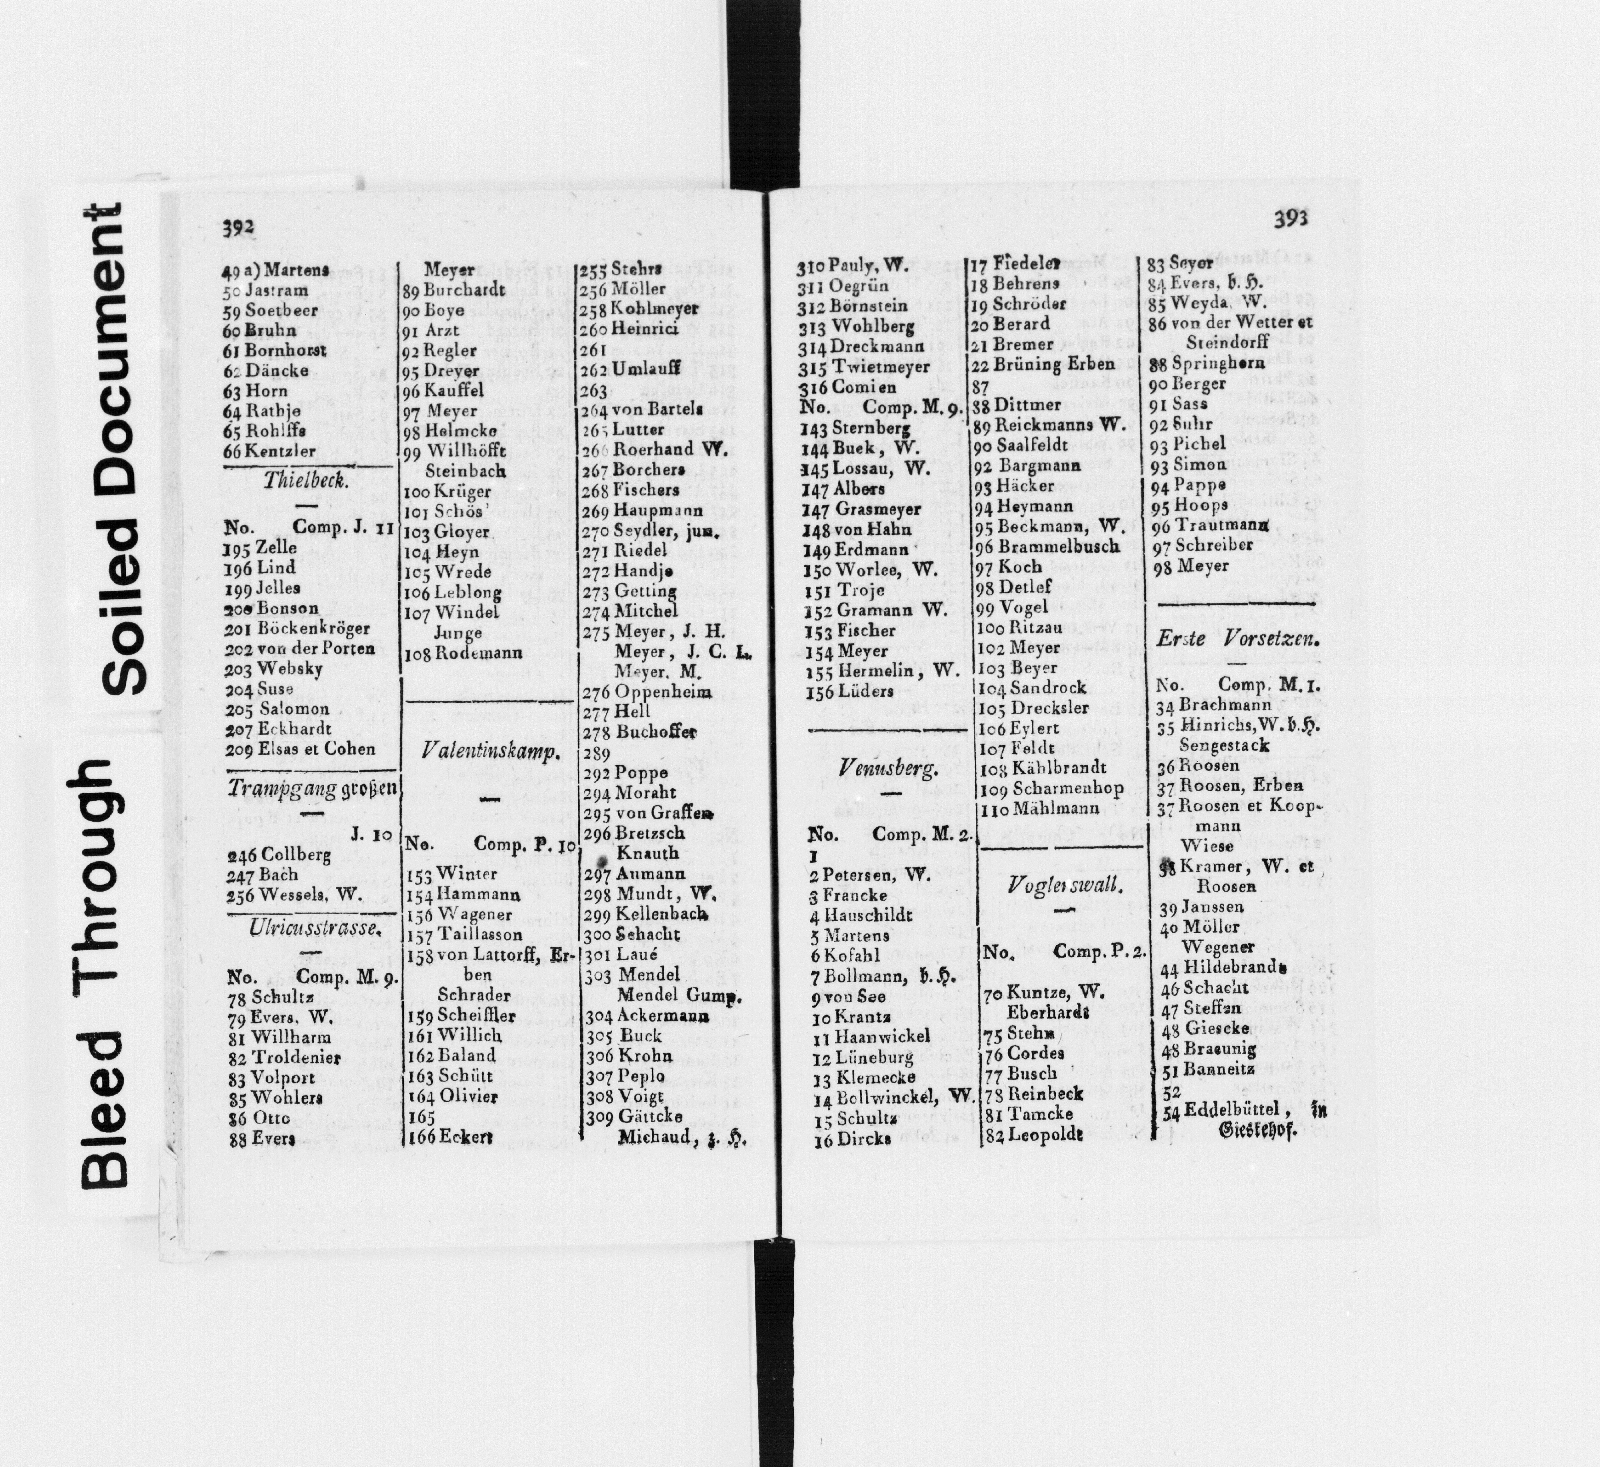 Soiled Document
Bleed Through
392
49 a) Martens
50 Jastram
59 Soetbeer
60 Bruhn
61 Bornhorst
62 Däncke
63 Horn
64 Rathje
65 Rohlffs
66 Kentzler
Thielbeck.
No. Comp. J. 11
195 Zelle
196 Lind
199 Jelles
200 Bonson
201 Böckenkröger
202 von der Porten
203 Websky
204 Suse
205 Salomon
207 Eckhardt
209 Elsas et Cohen
Trampgang großen
J. 10
246 Collberg
247 Bach
256 Wessels, W.
Ulricusstrasse.
No. Comp. M. 9.
78 Schultz
79 Evers, W.
81 Willharm
82 Troldenier
83 Volport
85 Wohlers
86 Otto
88 Evers
Meyer
89 Burchardt
90 Boye
91 Arzt
92 Regler
95 Dreyer
96 Kauffel
97 Meyer
98 Helmcke
99 Willhöfft
Steinbach
100 Krüger
101 Schös
103 Gloyer
104 Heyn
105 Wrede
106 Leblong
107 Windel
Junge
108 Rodemann
Valentinskamp.
No. Comp. P. 10
153 Winter
154 Hammann
156 Wagener
157 Taillasson
158 von Lattorff, Er-
ben
Schrader
159 Scheiffler
161 Willich
162 Baland
163 Schütt
164 Olivier
165
166 Eckert
255 Stehrs
256 Möller
258 Kohlmeyer
260 Heinrici
261
262 Umlauff
263
264 von Bartels
265 Lutter
266 Roerhand W.
267 Borchers
268 Fischers
269 Haupmann
270 Seydler, jun.
271 Riedel
272 Handje
273 Getting
274 Mitchel
275 Meyer, J. H.
Meyer, J. C. L.
Meyer, M.
276 Oppenheim
277 Hell
278 Buchoffer
289
292 Poppe
294 Moraht
295 von Graffen
296 Bretzsch
Knauth
297 Aumann
298 Mundt, W.
299 Kellenbach
300 Schacht
301 Laué
303 Mendel
Mendel Gump.
304 Ackermann
305 Buck
306 Krohn
307 Peplo
308 Voigt
309 Gättcke
Michaud, z. H.
393
310 Pauly, W.
311 Oegrün
312 Börnstein
313 Wohlberg
314 Dreckmann
315 Twietmeyer
316 Comien
No. Comp. M. 9.
143 Sternberg
144 Buek, W.
145 Lossau, W.
147 Albers
147 Grasmeyer
148 von Hahn
149 Erdmann
150 Worlee, W.
151 Troje
152 Gramann W.
153 Fischer
154 Meyer
155 Hermelin, W.
156 Lüders
Venusberg.
No. Comp. M. 2.
1
2 Petersen, W.
3 Francke
4 Hauschildt
5 Martens
6 Kofahl
7 Bollmann, b. H.
9 von See
10 Krantz
11 Haanwickel
12 Lüneburg
13 Klemecke
14 Bollwinckel, W.
15 Schultz
16 Dircks
17 Fiedeler
18 Behrens
19 Schröder
20 Berard
21 Bremer
22 Brüning Erben
87
88 Dittmer
89 Reickmanns W.
90 Saalfeldt
92 Bargmann
93 Häcker
94 Heymann
95 Beckmann, W.
96 Brammelbusch
97 Koch
98 Detlef
99 Vogel
100 Ritzau
102 Meyer
103 Beyer
104 Sandrock
105 Drecksler
106 Eylert
107 Feldt
108 Kählbrandt
109 Scharmenhop
110 Mählmann
Voglerswall.
No. Comp. P. 2.
70 Kuntze, W.
Eberhardt
75 Stehn
76 Cordes
77 Busch
78 Reinbeck
81 Tamcke
82 Leopoldt
83 Seyer
84 Evers, b. H.
85 Weyda, W.
86 von der Wetter et
Steindorff
88 Springhorn
90 Berger
91 Sass
92 Suhr
93 Pichel
93 Simon
94 Pappe
95 Hoops
96 Trautmann
97 Schreiber
98 Meyer
Erste Vorsetzen.
No. Comp. M. 1.
34 Brachmann
35 Hinrichs, W. b. H.
Sengestack
36 Roosen
37 Roosen, Erben
37 Roosen et Koop-
mann
Wiese
38 Kramer, W. et
Roosen
39 Janssen
40 Möller
Wegener
44 Hildebrandt
46 Schacht
47 Steffen
48 Giescke
48 Braeunig
51 Banneitz
52
54 Eddelbüttel, in
Giesfehof.